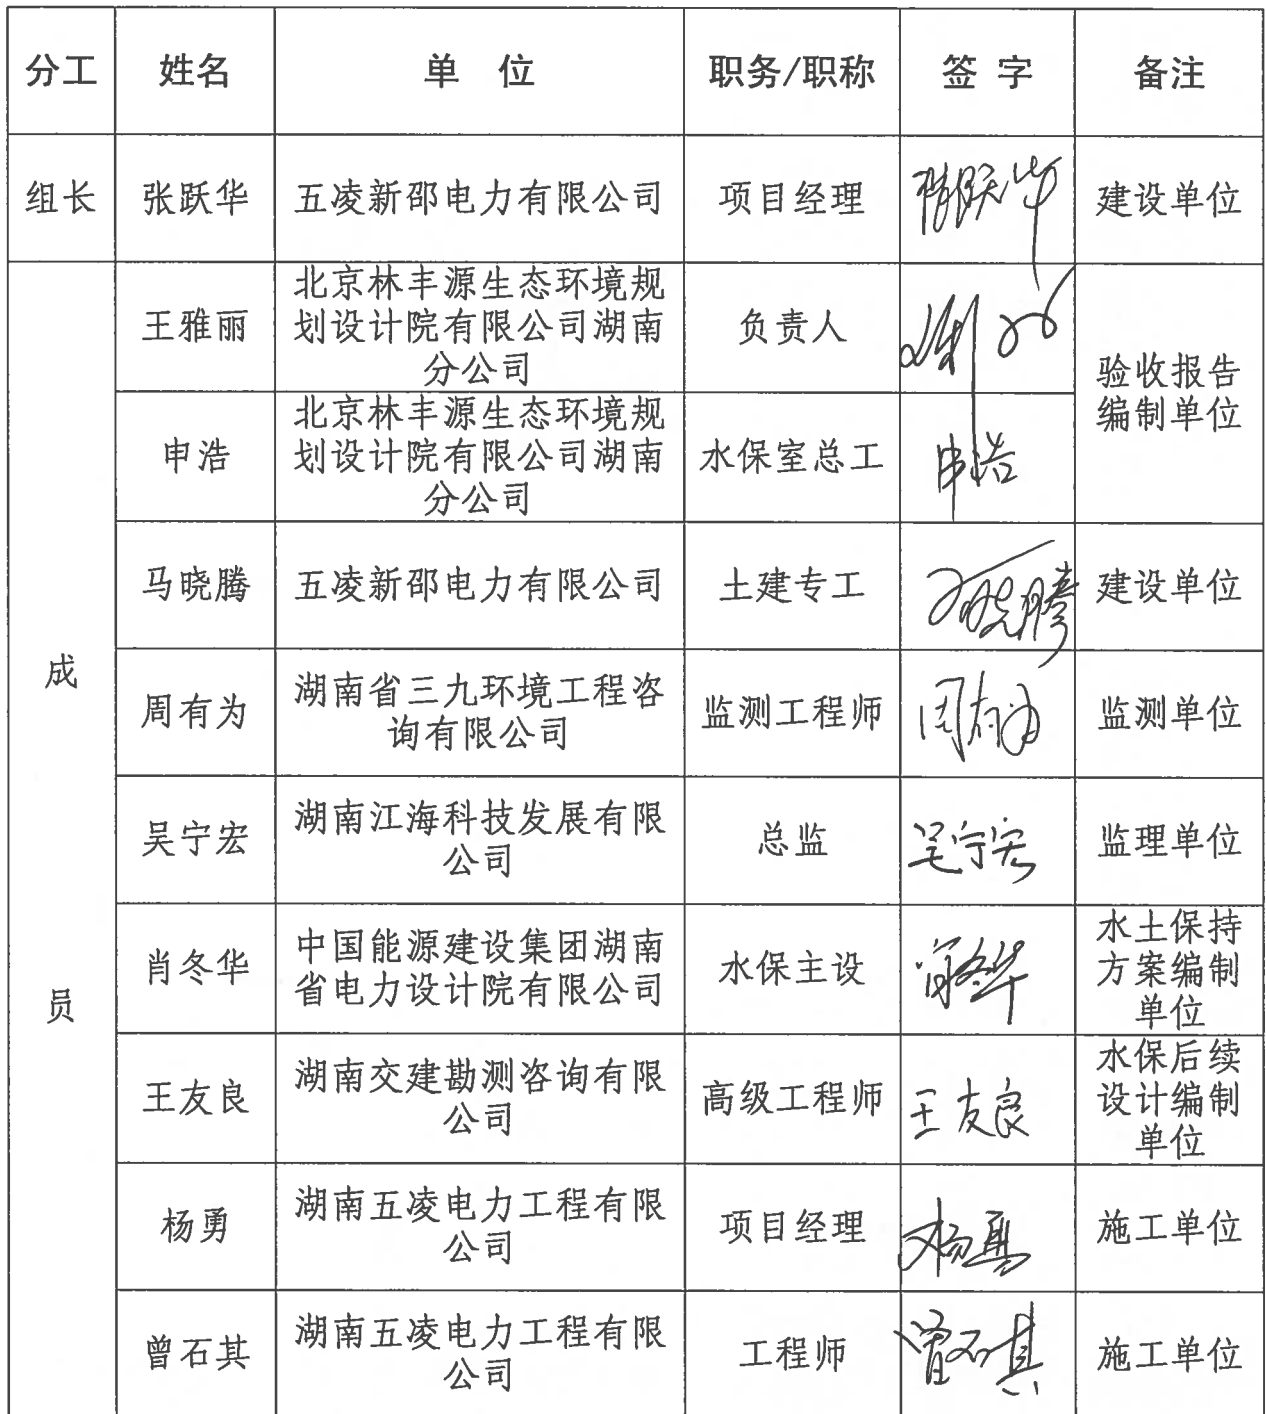 分工 姓名 单 位 职务/职称 签 字 备注
组长 张跃华 五凌新邵电力有限公司 项目经理 张跃华 建设单位
成
员
王雅丽
北京林丰源生态环境规
划设计院有限公司湖南
分公司
负责人
验收报告
编制单位
申浩
北京林丰源生态环境规
划设计院有限公司湖南
分公司
水保室总工 申浩
马晓腾 五凌新邵电力有限公司 土建专工 马晓腾 建设单位
周有为
湖南省三九环境工程咨
询有限公司
监测工程师 周有为 监测单位
吴宁宏
湖南江海科技发展有限
公司
总监 吴宁宏 监理单位
肖冬华
中国能源建设集团湖南
省电力设计院有限公司
水保主设 肖冬华
水土保持
方案编制
单位
王友良
湖南交建勘测咨询有限
公司
高级工程师 王友良
水保后续
设计编制
单位
杨勇
湖南五凌电力工程有限
公司
项目经理 杨勇 施工单位
曾石其
湖南五凌电力工程有限
公司
工程师 曾石其 施工单位